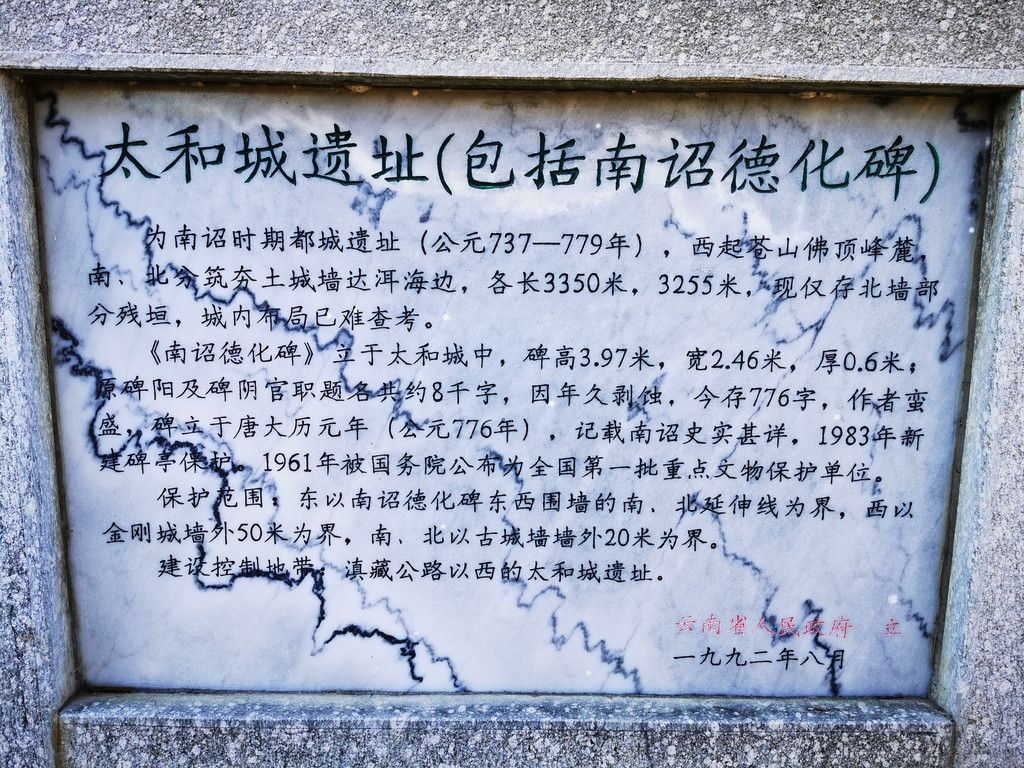 太和城遗址(包括南诏德化碑)
为南诏时期都城遗址(公元737—779年),西起苍山佛顶峰麓,
南、北分筑夯土城墙达洱海边,各长3350米,3255米,现仅存北墙部
分残垣,城内布局已难查考。
《南诏德化碑》立于太和城中,碑高3.97米,宽2.46米,厚0.6米;
原碑阳及碑阴官职题名共约8千字,因年久剥蚀,今存776字,作者蛮
盛,碑立于唐大历元年(公元776年),记载南诏史实甚详,1983年新
建碑亭保护。1961年被国务院公布为全国第一批重点文物保护单位。
保护范围:东以南诏德化碑东西围墙的南、北延伸线为界,西以
金刚城墙外50米为界,南、北以古城墙墙外20米为界。
建设控制地带:滇藏公路以西的太和城遗址。
云南省人民政府 立
一九九二年八月